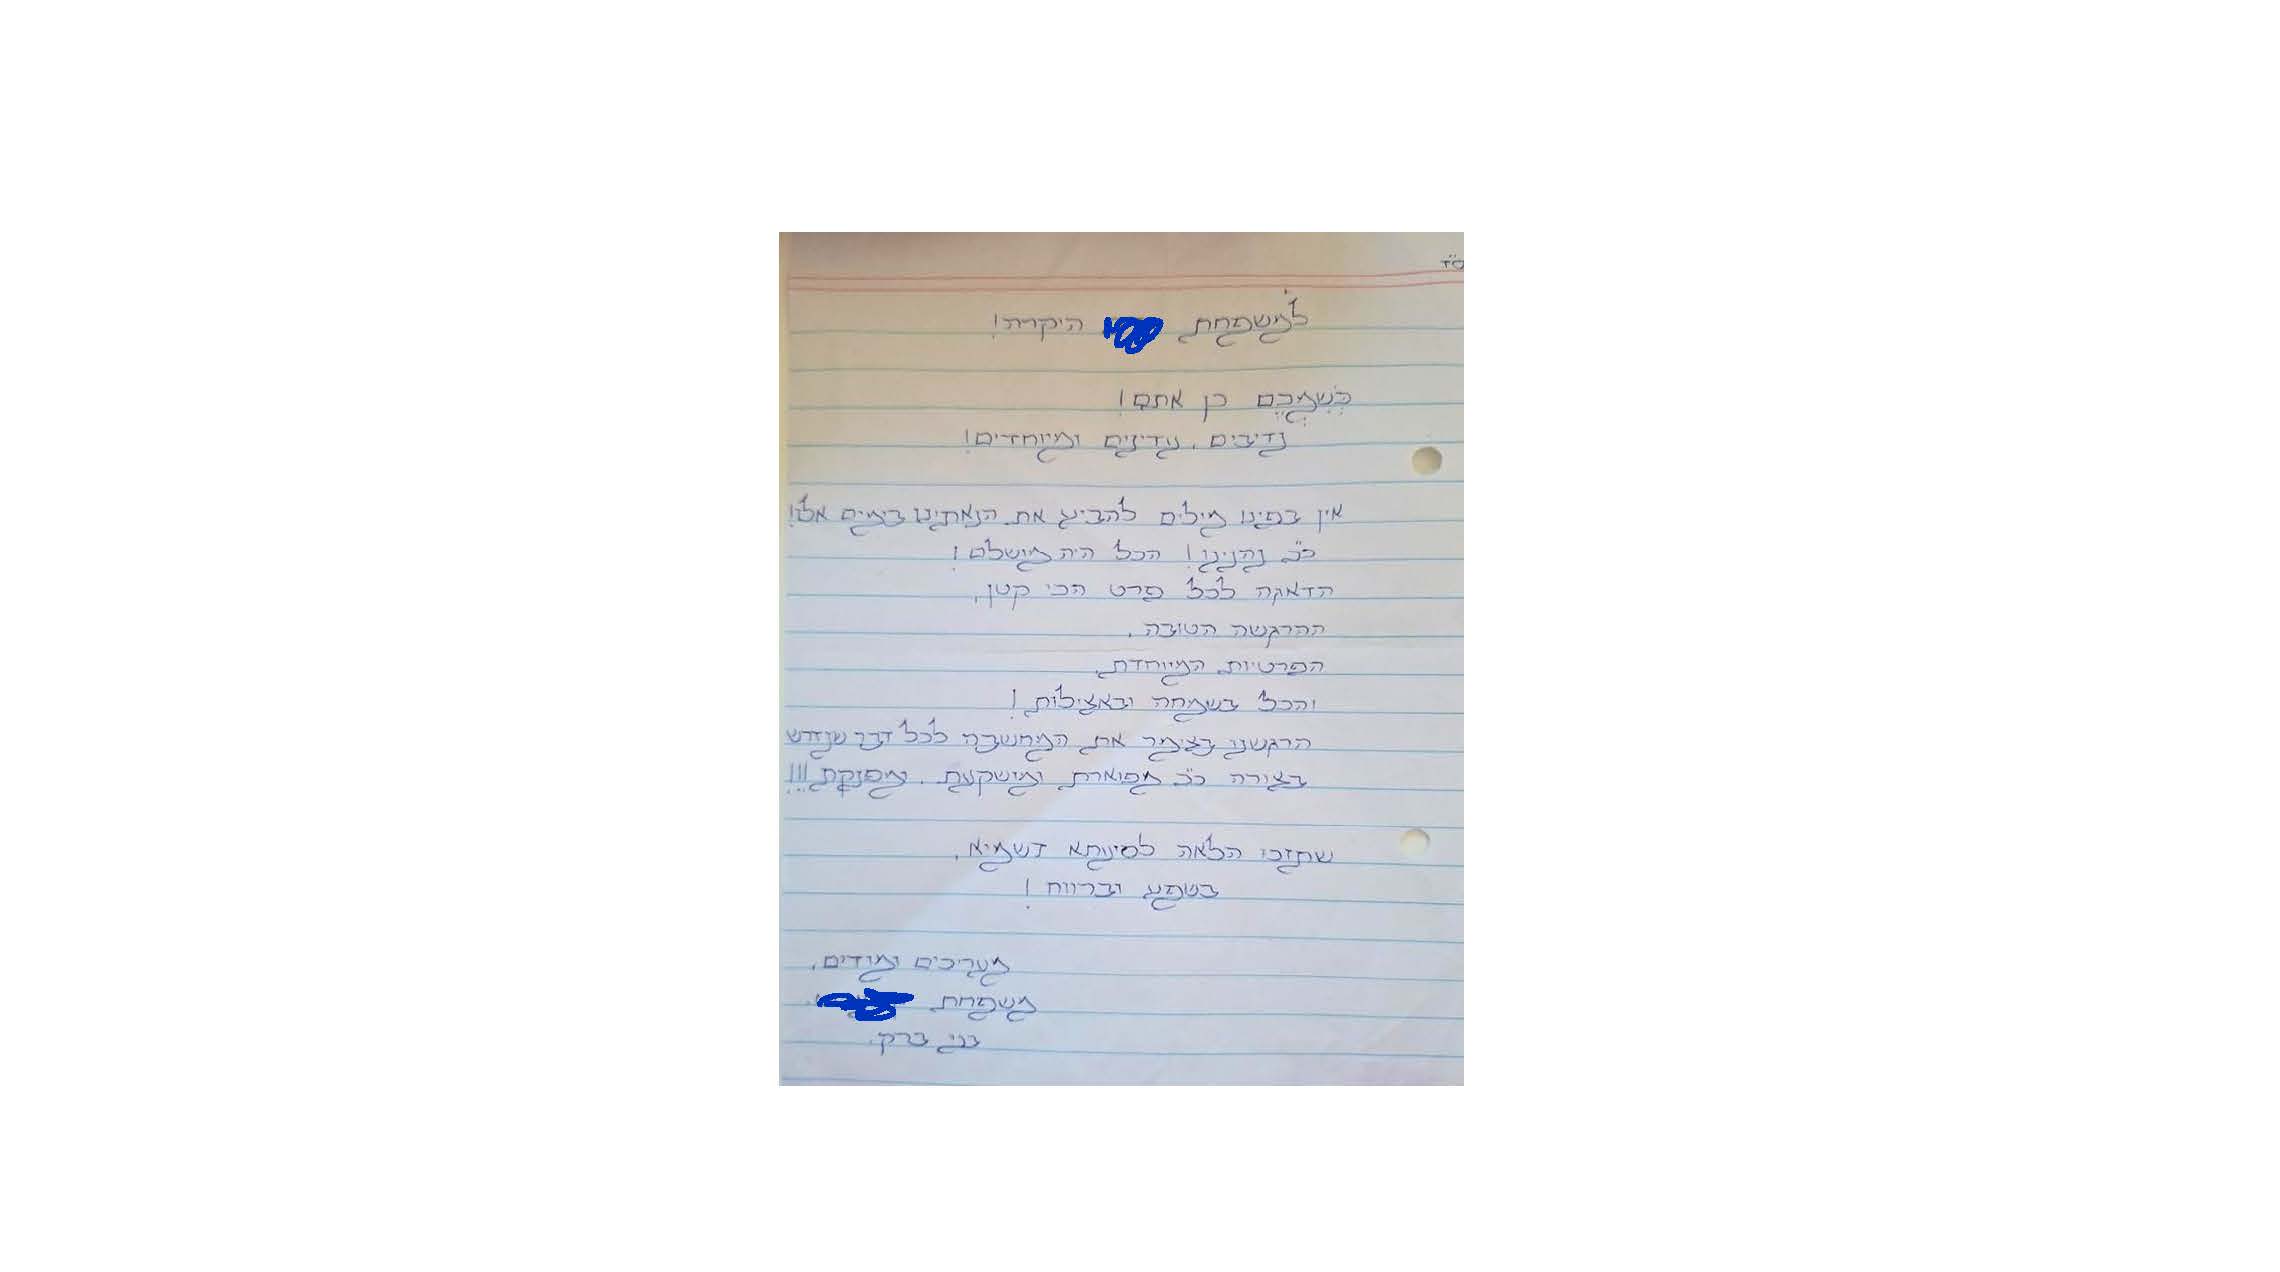 ס"ד
למשפחת היקרה!
כְּשִׁמְכֶם כן אתם!
נדיבים, עדינים ומיוחדים!
אין בפינו מילים להביע את הנאתינו בימים אלו!
כ"כ נהנינו! הכל היה מושלם!
הדאגה לכל פרט הכי קטן,
ההרגשה הטובה,
הפרטיות המיוחדת,
והכל בשמחה ובאצילות!
הרגשנו בצימר את המחשבה לכל דבר שנדרש
בצורה כ"כ מפוארת ומושקעת, ומפנקת!!!
שתזכו הלאה לסיעתא דשמיא,
בשפע וברווח!
מעריכים ומודים,
משפחת
בני ברק.